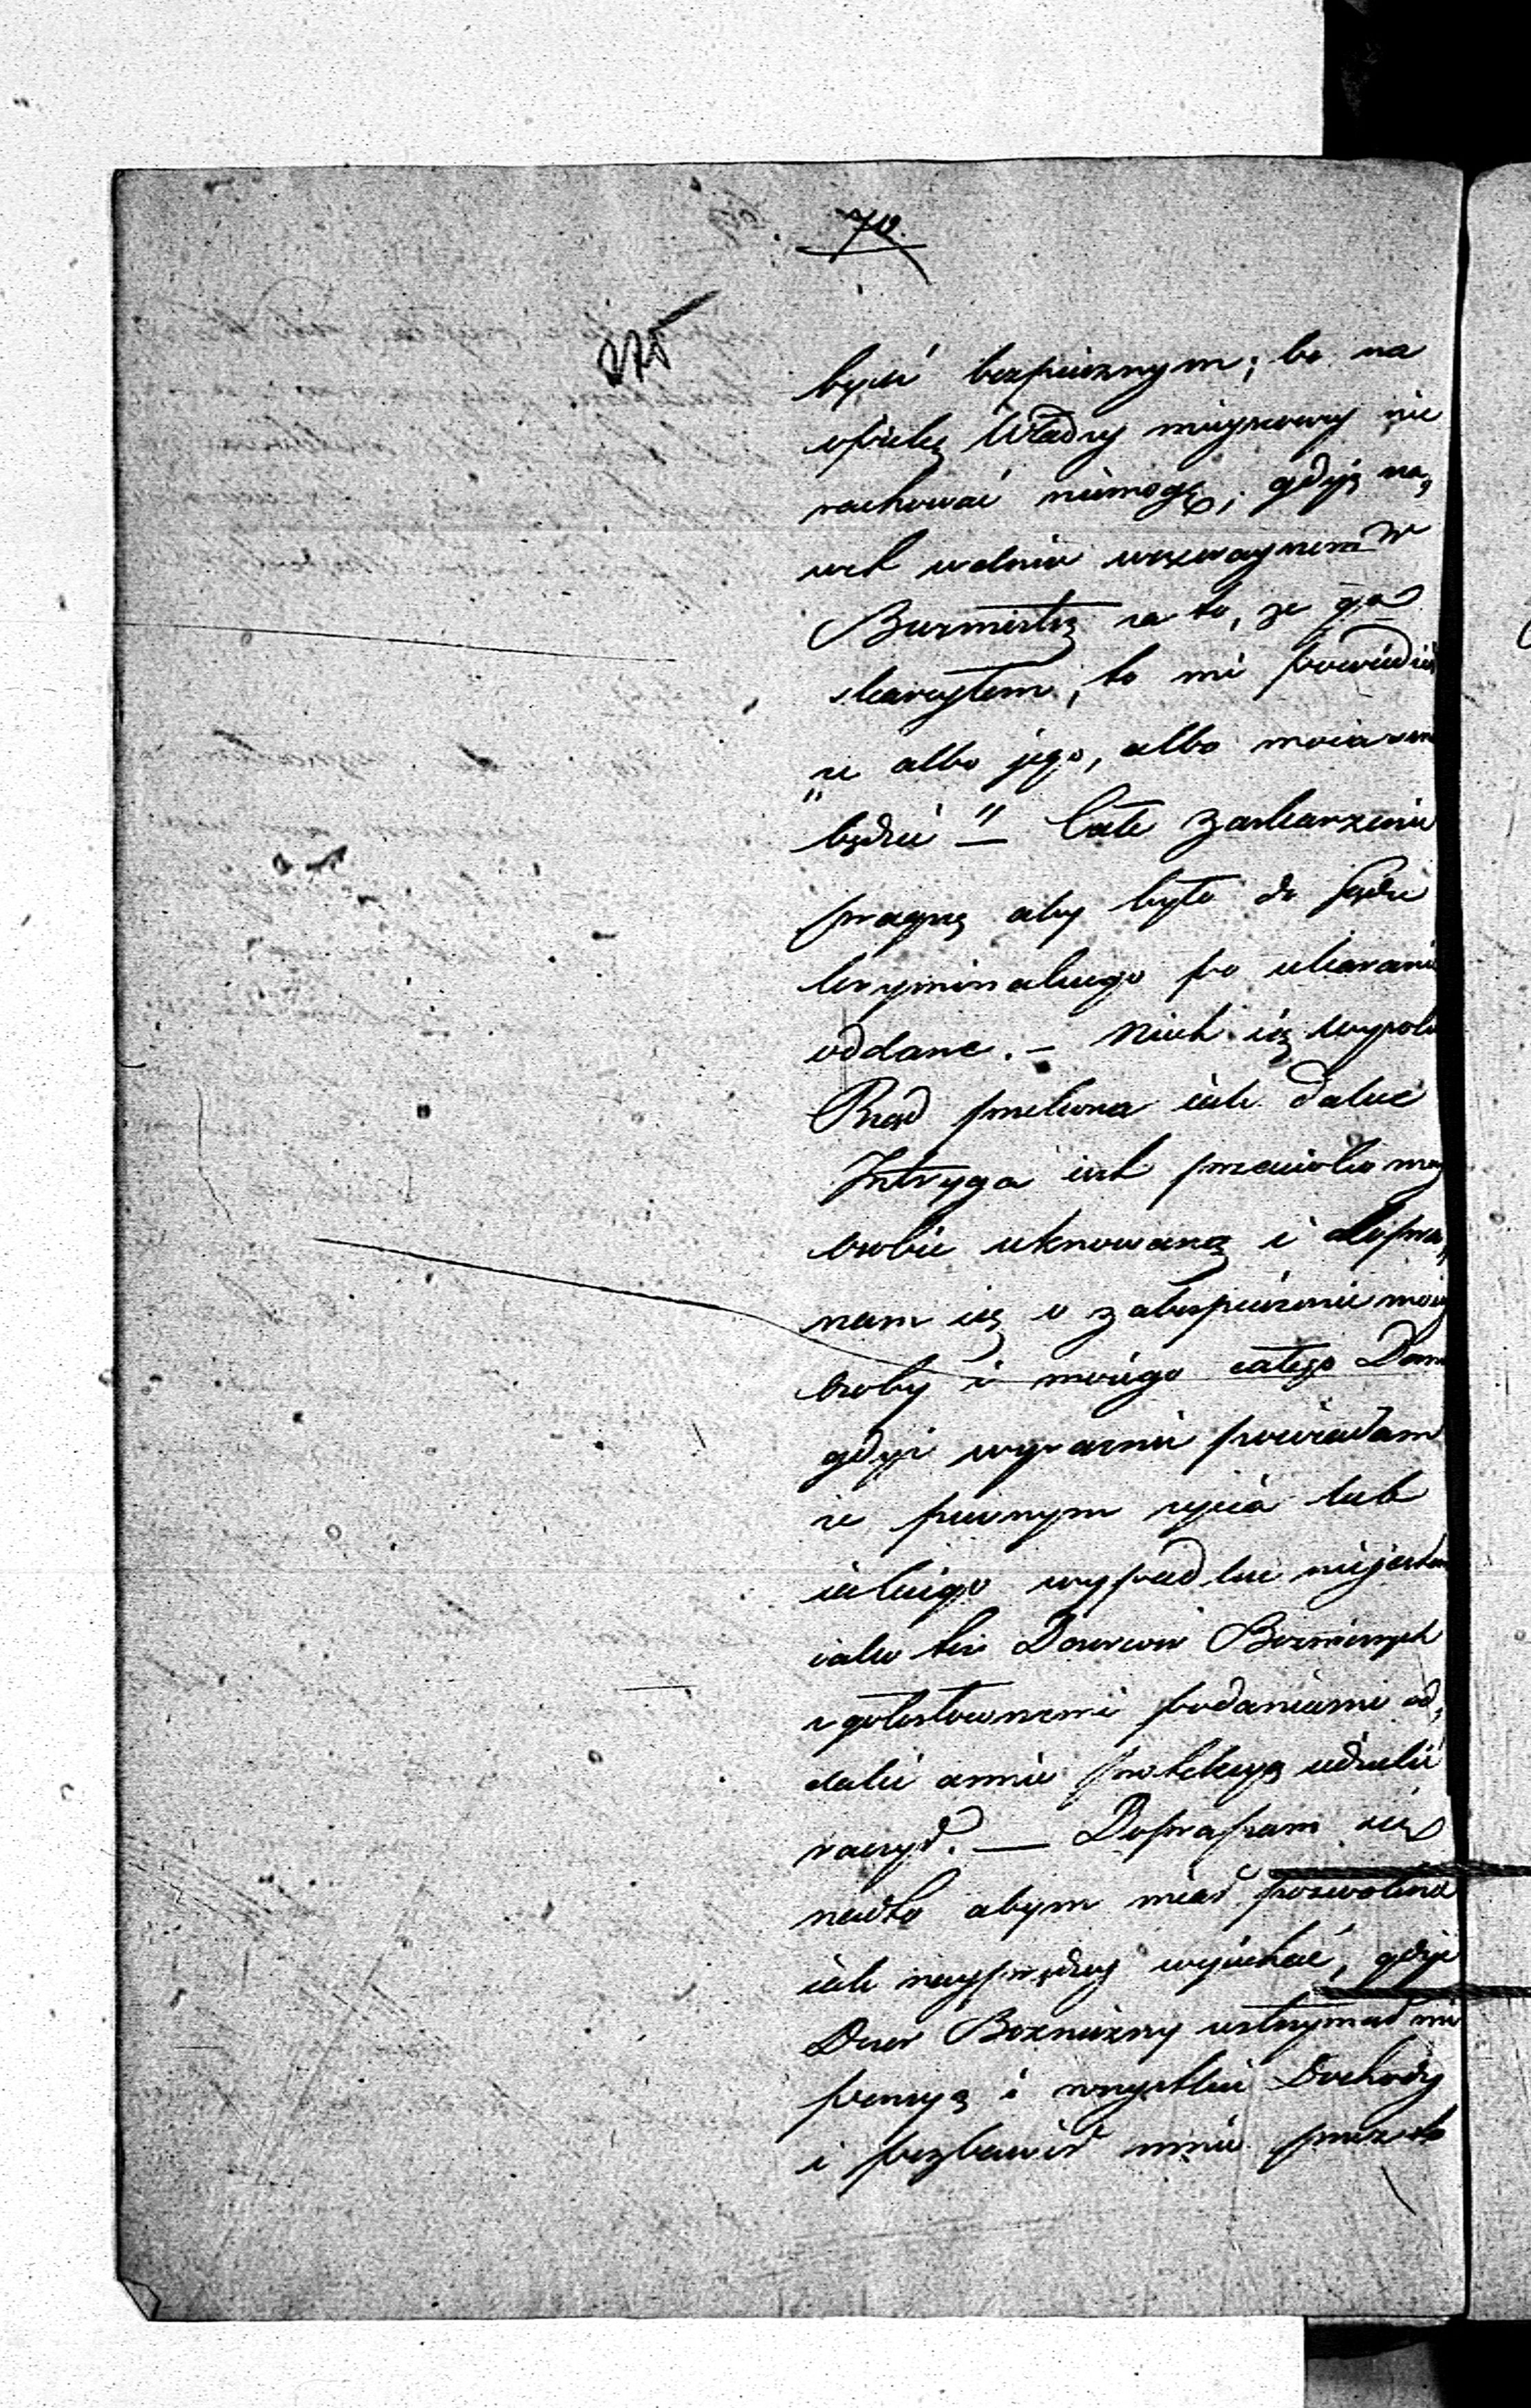 70.
275
bydź bezpiecznym; bo na
opiekę Władzy mieyscowey nie
rachować niemogę, gdyż na,
wet wdniu wczorayszem W
Burmistrz za to, że go
skarzyłem, to mi powiedział
„że albo jego, albo moia
będzie" — Całe Zaskarzenie
pragnę aby było do Sądu
kryminalnego po ukaranie
oddane. — Niech się
Rząd przekona iak daleко
Intryga ich przeciwko mey
osobie uknowaną i dopra,
szam się o zabespieczenie moiey
osoby i moiego całego Domu
gdyż wyraznie powiadam
że pewnym życia lub
iakiego wypadku niejestem
iako też Dozorców Boznicznych
z gołosłownemi podaniami od,
dalić a mnie protekcyą udzielić
raczył. — Dopraszam się
nadto abym miał pozwolenie
iak nayprędzey wyiechać, gdyż
Dozor Bozniczny wstrzymał mi
pensyą i wszystkie Dochody
i pozbawił mnie przez to